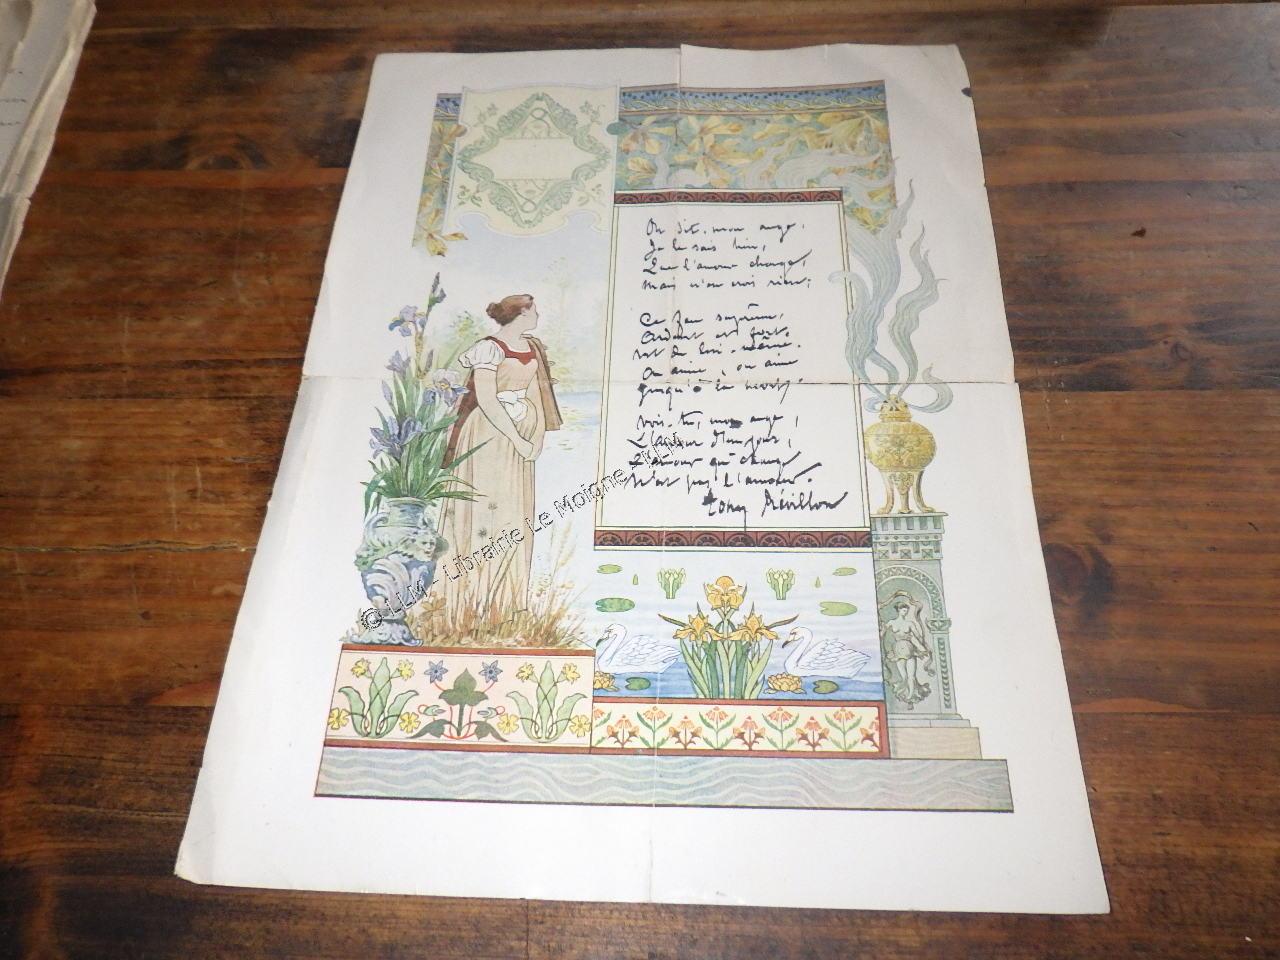 On dit, mon ange,
Je le sais bien,
Que l'amour change,
Mais n'en crois rien;
Ce feu suprême,
Ardent et fort,
est de lui-même.
On aime, on aime
Jusqu'à la mort!
Vois-tu, mon ange,
L'amour d'un jour,
L'amour qui change
N'est pas l'amour.
Tony Révillon
© LLM - Librairie Le Moigne - LLM